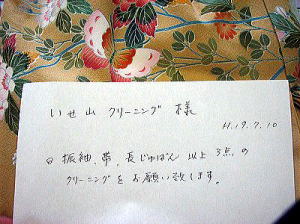 いせ山 クリーニング 様
H.19.7.10
◎ 振袖、帯、長じゅばん 以上 3点の
クリーニングを お願い致します。